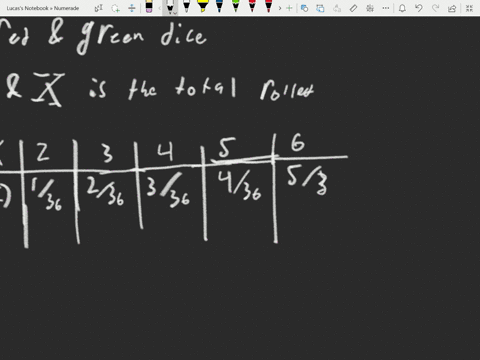 Lucas's Notebook » Numerade
red & green dice
& X is the total rolled
2 3 4 5 6
1/36 2/36 3/36 4/36 5/3